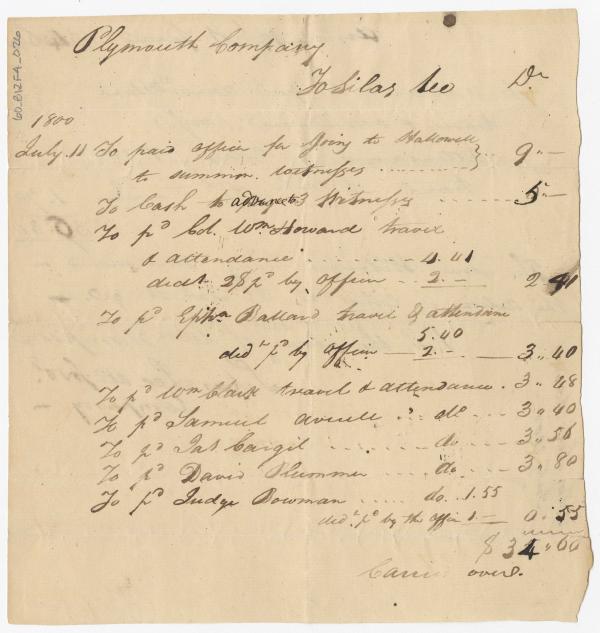 60.B12.F4_026
Plymouth Company
To Silas Lee Dr
1800
July 11 To paid officer for going to Hallowell
to summon witnesses ........ } 9"—
To Cash to advance to 3 Witnesses ..... 5"—
To pd Col. Wm Howard travel
& attendance ........ 4.41
dedt 2$ pd by officer .. 2.— 2 41
To pd Ephm Ballard travel & attendance
5.40
dedt pd by officer — 2.— — 3" 40
To pd Wm Clark travel & attendance . 3" 48
To pd Samuel Averell " do ... 3" 40
To pd Jas Cargil ...... do ... 3" 56
To pd David Plummer .... do ... 3" 80
To pd Judge Bowman ..... do. 1.55
dedt pd by the offier 1.— 0" 55
$ 34" 60
Carried over.